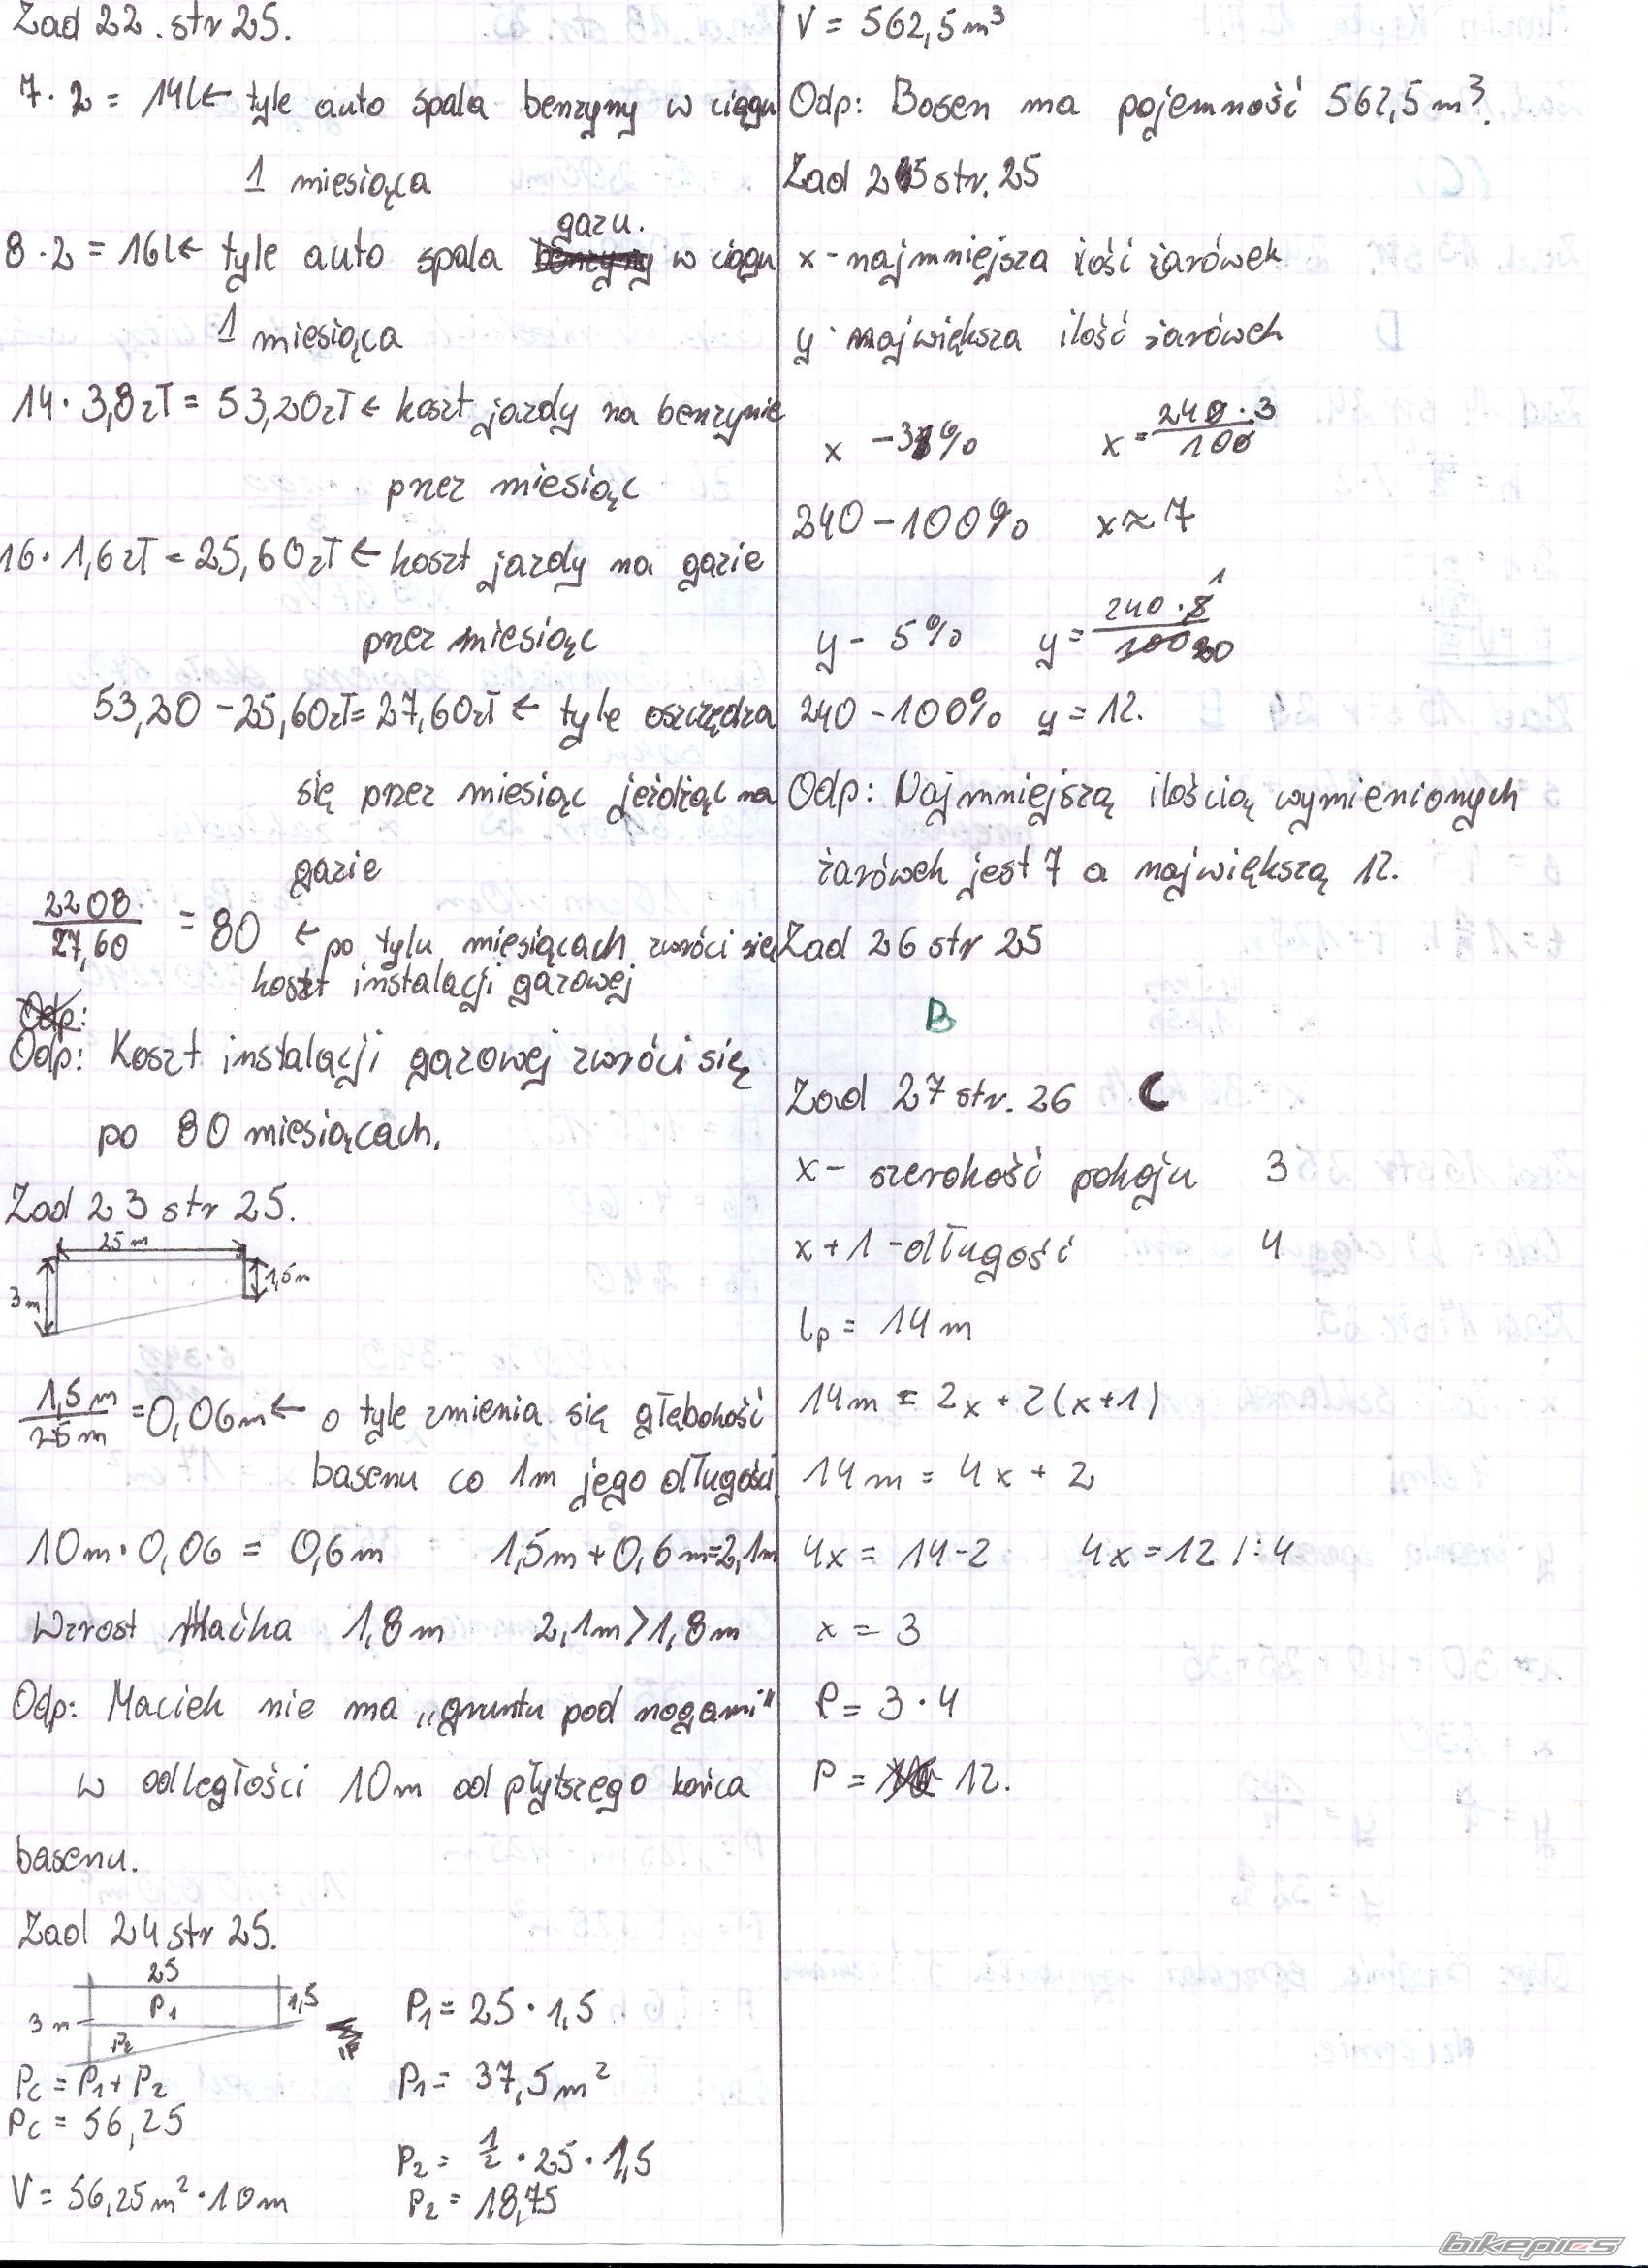 Zad 22. str 25.
7 · 2 = 14l ← tyle auto spala benzyny w ciągu
1 miesiąca
gazu.
8 · 2 = 16l ← tyle auto spala benzyny w ciągu
1 miesiąca
14 · 3,8zł = 53,20zł ← koszt jazdy na benzynie
przez miesiąc
16 · 1,6zł = 25,60zł ← koszt jazdy na gazie
przez miesiąc
53,20 - 25,60zł = 27,60zł ← tyle oszczędza
się przez miesiąc jeżdżąc na
gazie
2208
27,60
= 80 ← po tylu miesiącach zwróci się
koszt instalacji gazowej
Odp:
Odp: Koszt instalacji gazowej zwróci się
po 80 miesiącach.
Zad 23 str 25.
25 m
3 m
1,5m
1,5 m
25 m
= 0,06m ← o tyle zmienia się głębokość
basenu co 1m jego długości
10m · 0,06 = 0,6m 1,5m + 0,6m = 2,1m
Wzrost Maćka 1,8m 2,1m > 1,8m
Odp: Maciek nie ma „gruntu pod nogami"
w odległości 10m od płytszego końca
basenu.
Zad 24 str 25.
25
P1
1,5
3 m
P2
Pc = P1 + P2
Pc = 56,25
V = 56,25m² · 10m
P1 = 25 · 1,5
P1 = 37,5m²
P2 = 1/2 · 25 · 1,5
P2 = 18,75
V = 562,5m³
Odp: Basen ma pojemność 562,5m³.
Zad 25 str. 25
x - najmniejsza ilość żarówek
y - największa ilość żarówek
x - 3% x = 240 · 3 / 100
240 - 100% x ≈ 7
1
y - 5% y = 240 · 5 / 100 20
240 - 100% y = 12.
Odp: Najmniejszą ilością wymienionych
żarówek jest 7 a największą 12.
Zad 26 str 25
B
Zad 27 str. 26 C
x - szerokość pokoju 3
x + 1 - długość 4
lp = 14 m
14m = 2x + 2(x+1)
14m = 4x + 2
4x = 14 - 2 4x = 12 /:4
x = 3
P = 3 · 4
P = 12.
bikepics